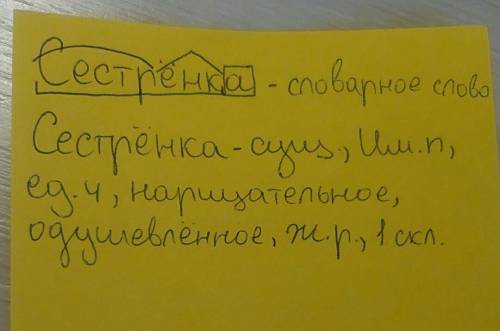 Сестрёнка - словарное слово
Сестрёнка - сущ., Им.п,
ед.ч, нарицательное,
одушевлённое, ж.р., 1 скл.